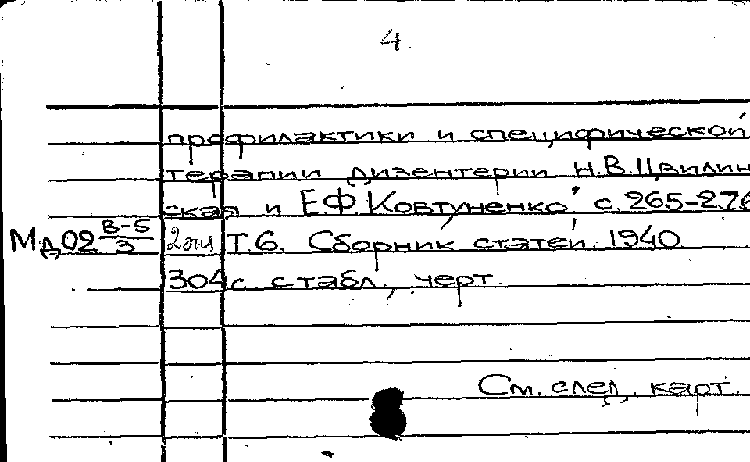 4.
профилактики и специфической
терапии дизентерии Н.В.Цвилин
ская и Е.Ф.Ковтуненко, с.265-276
Мд02 В-5/3 2оп Т.6. Сборник статей 1940
304с. с табл., черт.
См. след. карт.